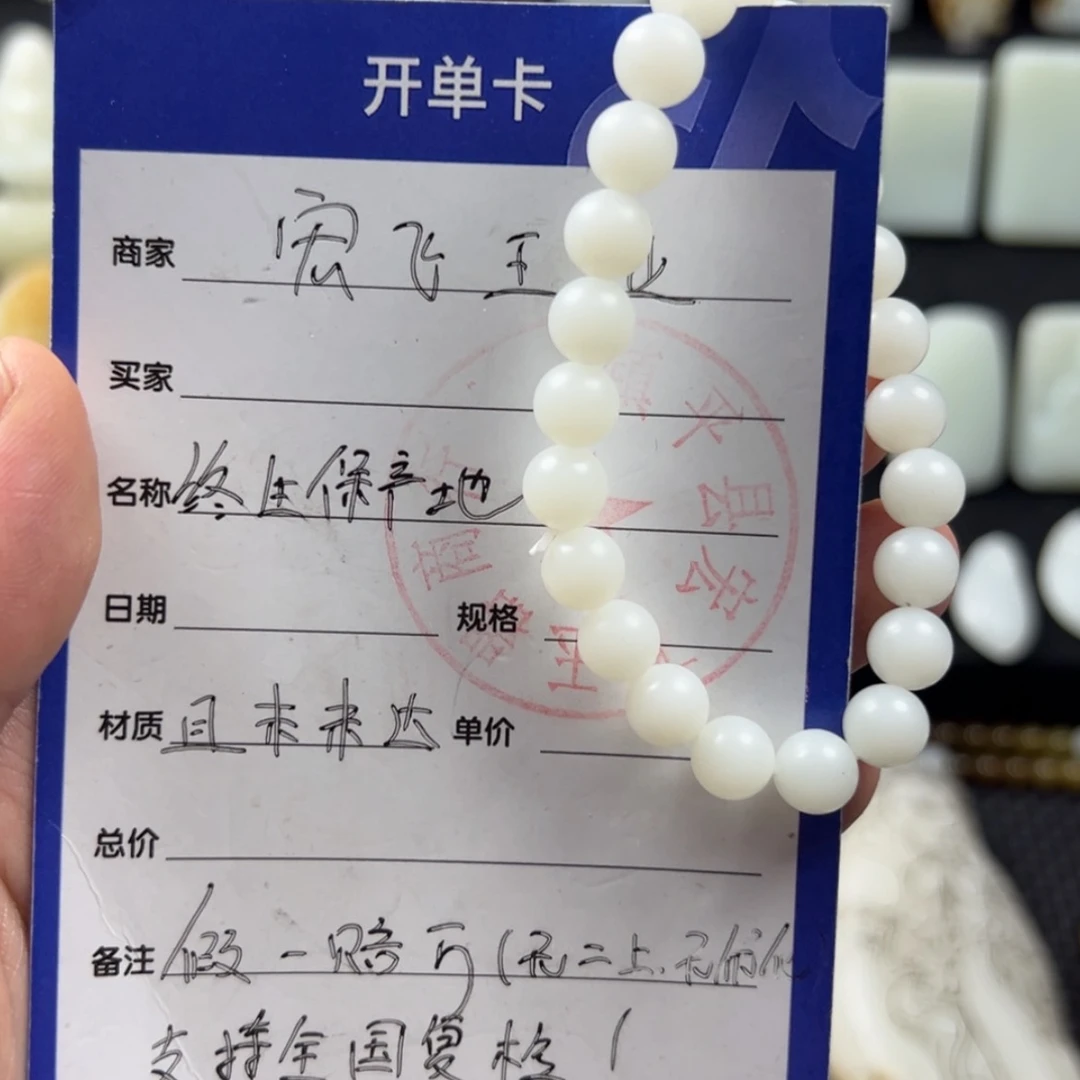 开单卡
商家 宏飞玉业
买家
名称 终生保产地
日期 规格
材质 且末未达 单价
总价
备注 假一赔万(无二上无伤化
支持全国复检!